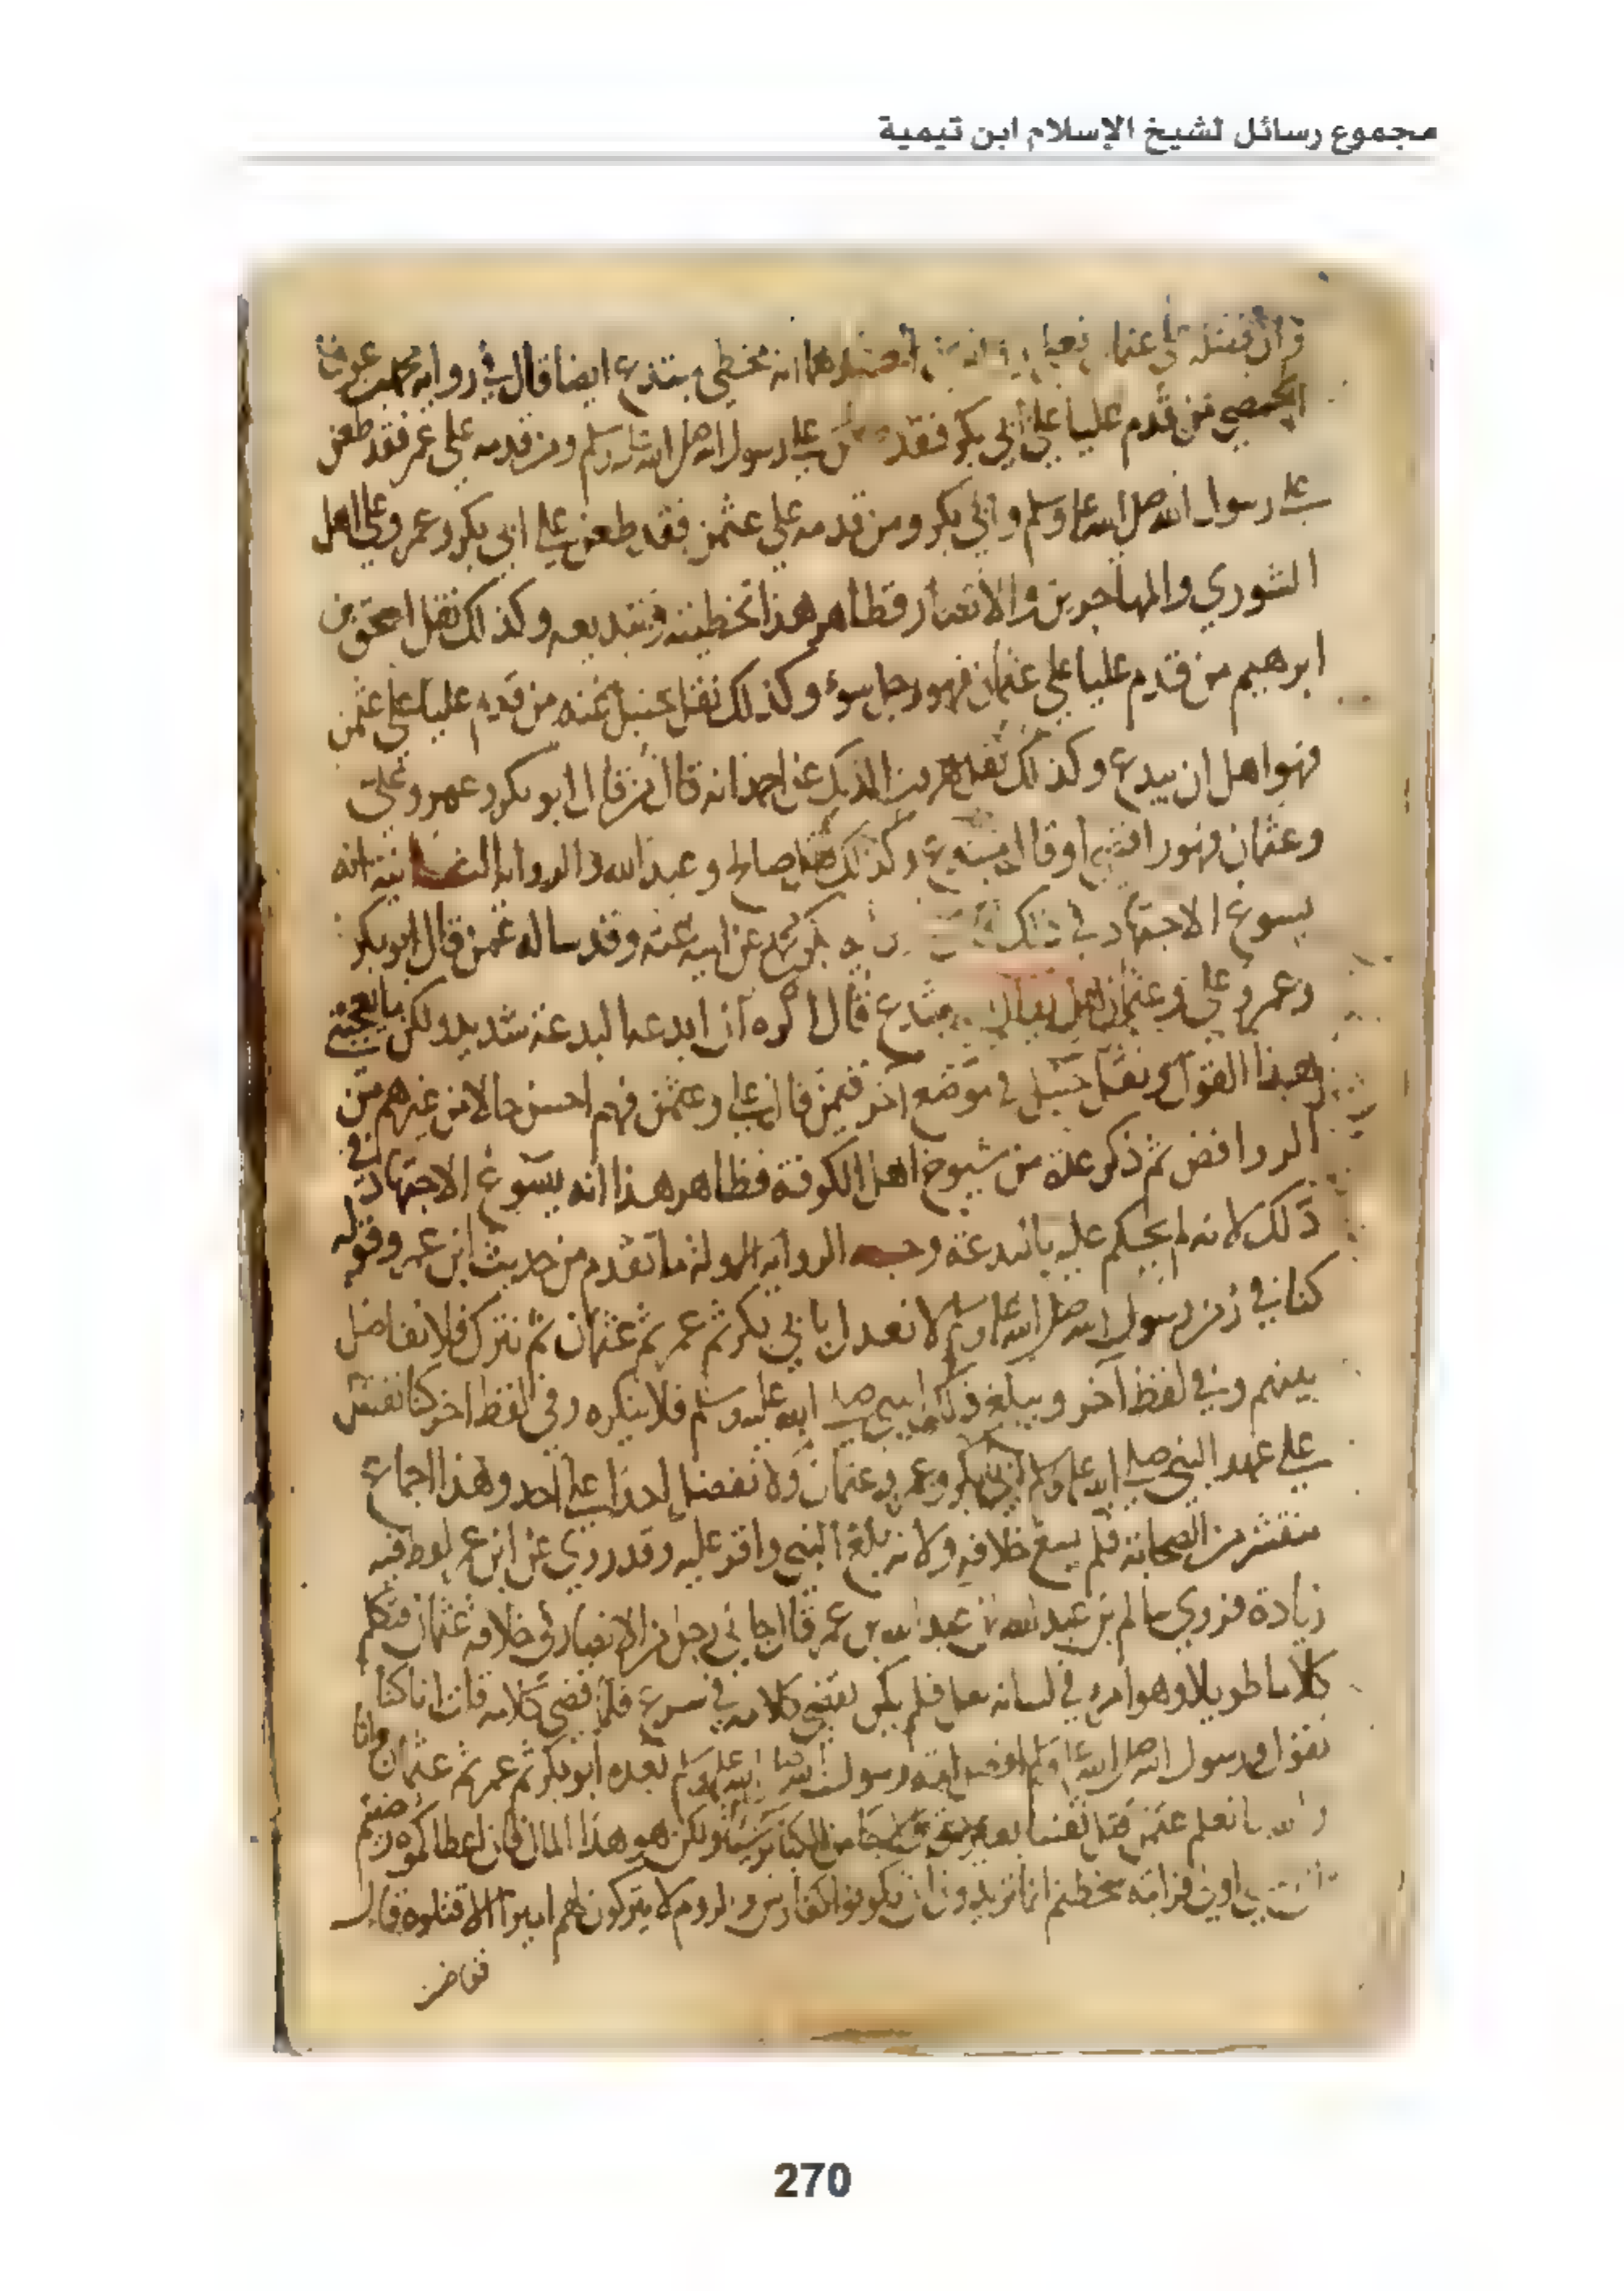 مجموع رسائل لشيخ الإسلام ابن تيمية
وان فضله على عثمان انه مخطئ مبتدع ايضا قال في رواية محمد بن عوف
الحمصي من قدم عليا على ابي بكر فقد طعن على رسول الله صلى الله عليه وسلم ومن قدمه على عمر فقد طعن
على رسول الله صلى الله عليه وسلم وابي بكر ومن قدمه على عثمن فقد طعن على ابي بكر وعمر وعلى اهل
الشوري والمهاجرين والانصار فظاهر هذا تخطيته وتبديعه وكذلك نقل اسحق بن
ابرهيم من قدم عليا على عثمان فهو رجل سوء وكذلك نقل حنبل عنه من قدم عليا على عثمن
فهو اهل ان يبدع وكذلك نقل هرون الديك عن احمد انه قال من قال ابو بكر وعمر وعلى
وعثمان فهو رافضي او قال مبتدع وكذلك صالح وعبد الله والرواية الثانية انه
يسوغ الاجتهاد في ذلك عن ابيه عنه وقد ساله عمن قال ابو بكر
وعمر وعلي وعثمان هل يقال مبتدع قال اكره ان ابدعه البدعة شديد ولكن ما يعجبني
هذا القول ونقل حنبل في موضع آخر فيمن قال علي وعثمن فهم احسن حالا من غيرهم من
الروافض ثم ذكر علة من شيوخ اهل الكوفة فظاهر هذا انه يسوغ الاجتهاد في
ذلك لانه لم يحكم عليه بالبدعة وجه الرواية الاولة ما تقدم من حديث ابن عمر وقوله
كنا في زمن رسول الله صلى الله عليه وسلم لا نعدل بابي بكر ثم عمر ثم عثمان ثم نترك فلا نفاضل
بينهم وفي لفظ آخر ويبلغ ذلك النبي صلى الله عليه وسلم فلا ينكره وفي لفظ اخر كنا نفضل
على عهد النبي صلى الله عليه وسلم ابي بكر وعمر وعثمان ولا نفضل احدا على احد وهذا اجماع
منتشر من الصحابة فلم يسغ خلافه ولانه بلغ النبي واقر عليه وقد روي عن ابن عمر لفظ فيه
زيادة فروي سالم بن عبد الله عن عبد الله بن عمر قال جاني رجل من الانصار في خلافة عثمان فتكلم
كلاما طويلا وهو امرء في لسانه ثقل فلم يكن يقضي كلامه في سرع فلما قضى كلامه قلت انا كنا
نقول ورسول الله صلى الله عليه وسلم افضل امة رسول الله صلى الله عليه وسلم بعده ابو بكر ثم عمر ثم عثمان وانا
والله ما نعلم عثمن قتل نفسا بغير حق ولا جا من الكبائر شيئا ولكن هو هذا المال فان اعطاكموه رضيتم
اولي قرابته سخطتم انما تريدون ان تكونوا كفارس والروم لا يتركون لهم اميرا الا قتلوه قال
270